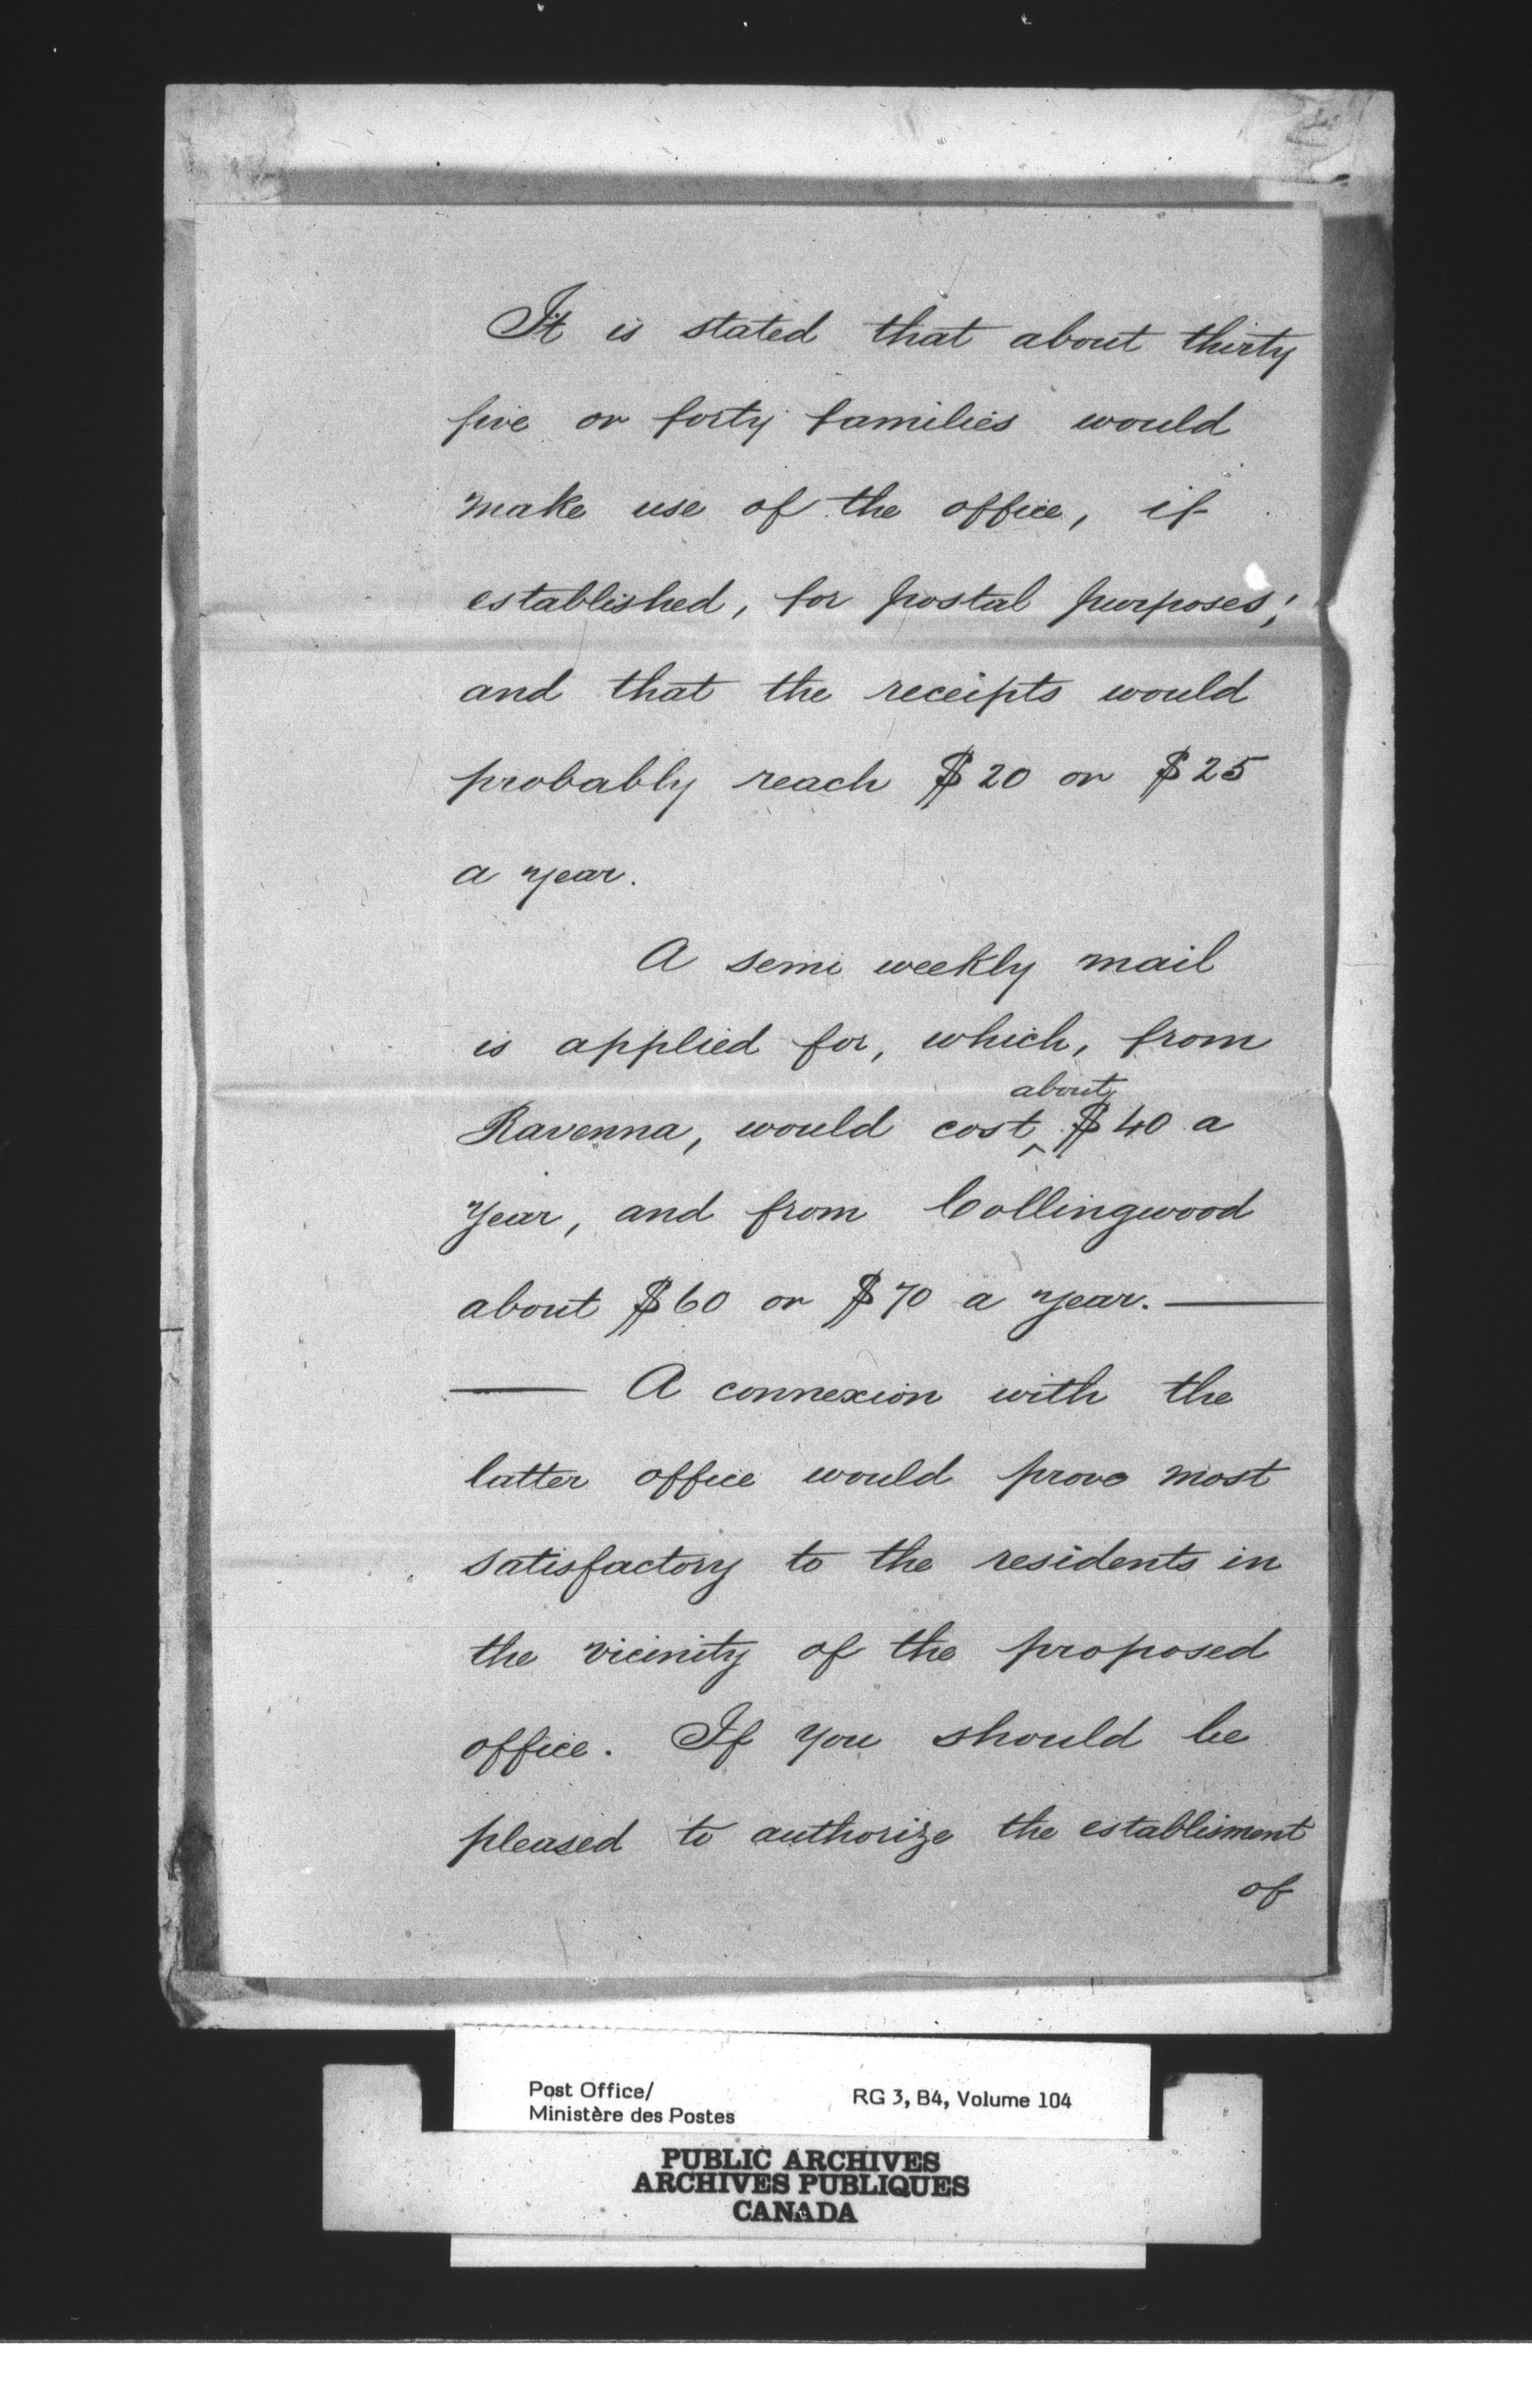 It is stated that about thirty
five or forty families would
make use of the office, if
established, for postal purposes;
and that the receipts would
probably reach $20 or $25
a year.
A semi weekly mail
is applied for, which, from
about
Ravenna, would cost ^ $40 a
year, and from Collingwood
about $60 or $70 a year. —
— A connexion with the
latter office would prove most
satisfactory to the residents in
the vicinity of the proposed
office. If you should be
pleased to authorize the establisment
of
Post Office/ RG 3, B4, Volume 104
Ministère des Postes
PUBLIC ARCHIVES
ARCHIVES PUBLIQUES
CANADA